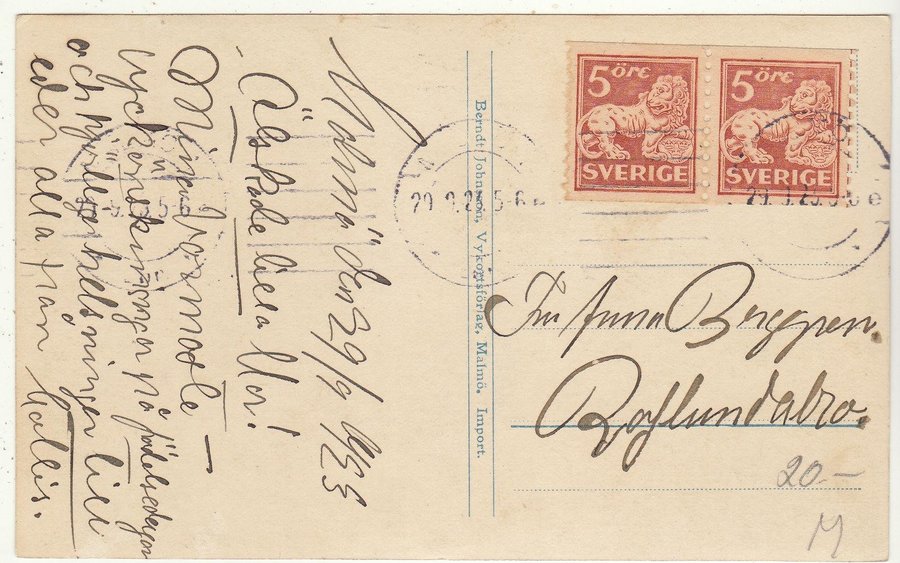 Malmö den 29/9 1923
Älskade lilla Mor!
Mina varmaste –
lyckönskningar på födelsedagen
och hjertliga helsningar till
eder alla från
Berndt Johnsson, Vykortsförlag, Malmö. Import.
5 öre
SVERIGE
5 öre
SVERIGE
29.9.23.5-6 e
Fru Anna Berggren.
20–
M